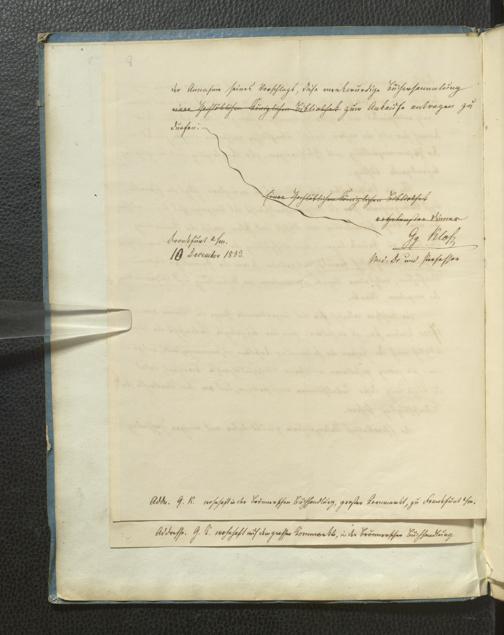 der Annahme seines Vorschlags, diese merkwürdige Büchersammlung
einer Hochlöblichen Königlichen Bibliothek zum Ankaufe antragen zu
dürfen.
Einer Hochlöblichen Königlichen Bibliothek
ergebenster Diener
Gg. Kloß
Med. Dr. und Professor
Frankfurt a/m.
10 December 1833.
Addr. G. K. wohnhaft in der Brönnerschen Buchhandlung, großer Kornmarkt, zu Frankfurt a/m.
Addresse. G. K. wohnhaft auf dem großen Kornmarkt, in der Brönnerschen Buchhandlung